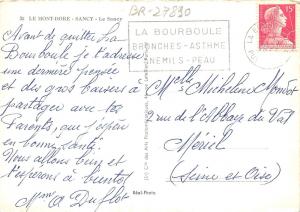 BR-27890
36 LE MONT-DORE - SANCY - Le Sancy
LA BOURBOULE
BRONCHES - ASTHME
ANEMIES - PEAU
15F
Avant de quitter La
Bourboule je t'adresse
une dernière pensée
et des gros baisers à
partager avec tes
Parents, que j'espère
en bonne santé.
Nous allons bien et
t'espérons à bientôt
Mme A Duflot
Melle Micheline
2 rue de l'Abbé du Val
Mériel
(Seine et Oise)
Réal-Photo